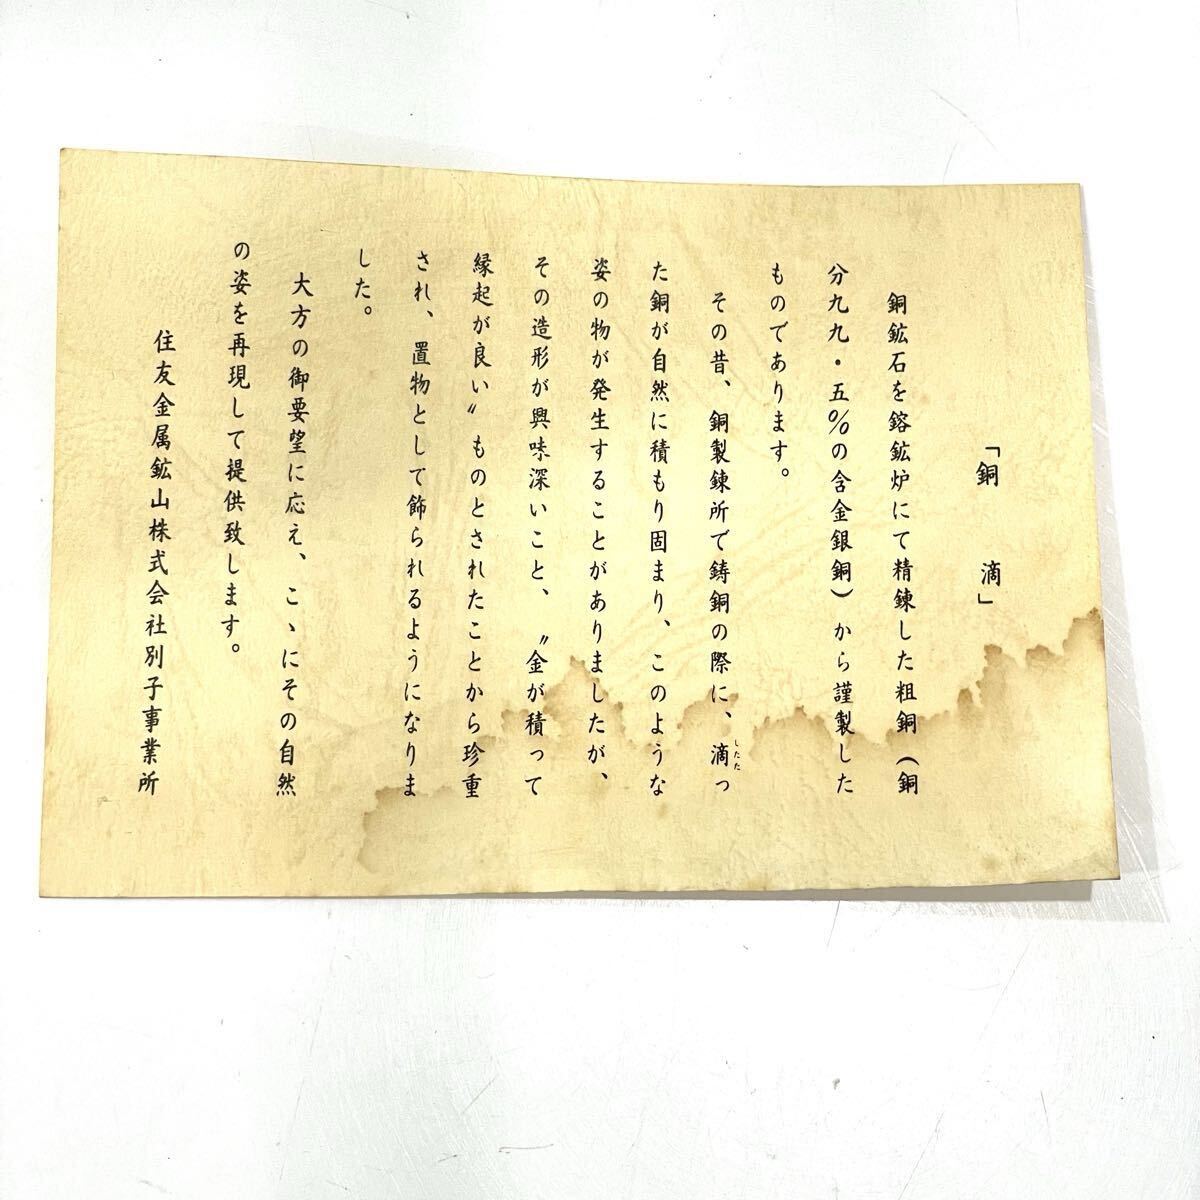 「銅 滴」
銅鉱石を鎔鉱炉にて精錬した粗銅(銅
分九九・五%の含金銀銅)から謹製した
ものであります。
その昔、銅製錬所で鋳銅の際に、滴っ
したた
た銅が自然に積もり固まり、このような
姿の物が発生することがありましたが、
その造形が興味深いこと、〝金が積って
縁起が良い〟ものとされたことから珍重
され、置物として飾られるようになりま
した。
大方の御要望に応え、こゝにその自然
の姿を再現して提供致します。
住友金属鉱山株式会社別子事業所